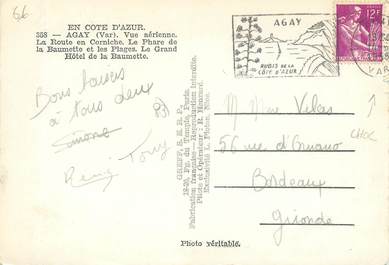 66
EN COTE D'AZUR.
358 — AGAY (Var). Vue aérienne.
La Route en Corniche. Le Phare de
la Baumette et les Plages. Le Grand
Hôtel de la Baumette.
AGAY
RUBIS DE LA
CÔTE D'AZUR
12F
VAR
Bons baisers
à tous deux
Simone
Rémi
GREFF, S. E. R. P.,
Fg. du Temple, Paris.
Fabrication française - Reproduction Interdite.
Pilote et Opérateur : R. Henrard.
M Mme
56 rue d'Ornano
Bordeaux
Gironde
CHOC
Photo véritable.